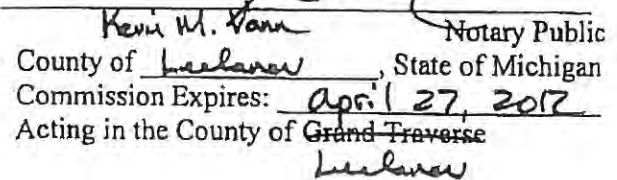 Kevin M. Vann
Notary Public
County of Leelanau, State of Michigan
Commission Expires: April 27, 2012
Acting in the County of Grand Traverse
Leelanau